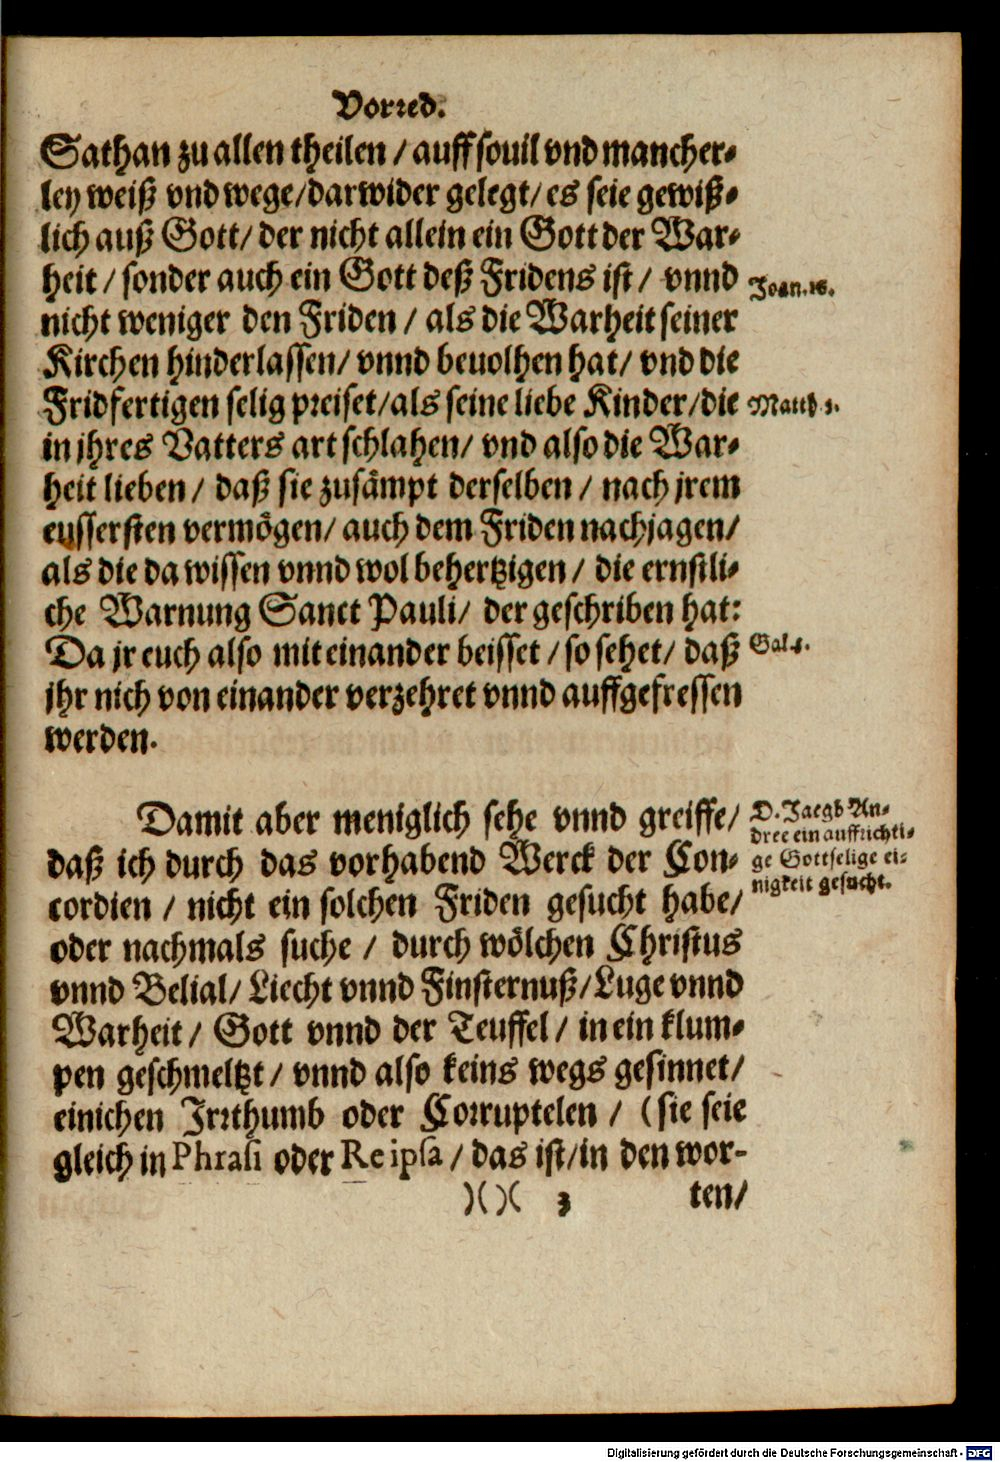 Vorred.
Sathan zu allen theilen / auff souil vnd mancher-
ley weiß vnd wege/ darwider gelegt/ es seie gewiß-
lich auß Gott/ der nicht allein ein Gott der War-
heit / sonder auch ein Gott deß Fridens ist / vnnd
Joan. 16.
nicht weniger den Friden / als die Warheit seiner
Kirchen hinderlassen/ vnnd beuolhen hat/ vnd die
Fridfertigen selig preiset/ als seine liebe Kinder/ die
Matth 5.
in jhres Vatters art schlahen/ vnd also die War-
heit lieben / daß sie zusåmpt derselben / nach jrem
eussersten vermögen/ auch dem Friden nachjagen/
als die da wissen vnnd wol behertzigen / die ernstli-
che Warnung Sanct Pauli/ der geschriben hat:
Da jr euch also mit einander beisset / so sehet/ daß
Gal.
jhr nich von einander verzehret vnnd auffgefressen
werden.
Damit aber meniglich sehe vnnd greiffe/
daß ich durch das vorhabend Werck der Con-
cordien / nicht ein solchen Friden gesucht habe/
D. Jacob An-
dree ein auffrichti-
ge Gottselige ei-
nigkeit gesucht.
oder nachmals suche / durch wölchen Christus
vnnd Belial/ Liecht vnnd Finsternuß/ Luge vnnd
Warheit / Gott vnnd der Teuffel / in ein klum-
pen geschmeltzt / vnnd also keins wegs gesinnet/
einichen Irrthumb oder Corruptelen / (sie seie
gleich in Phrasi oder Re ipsa / das ist/ in den wor-
)( )( 3 ten/
Digitalisierung gefördert durch die Deutsche Forschungsgemeinschaft - DFG